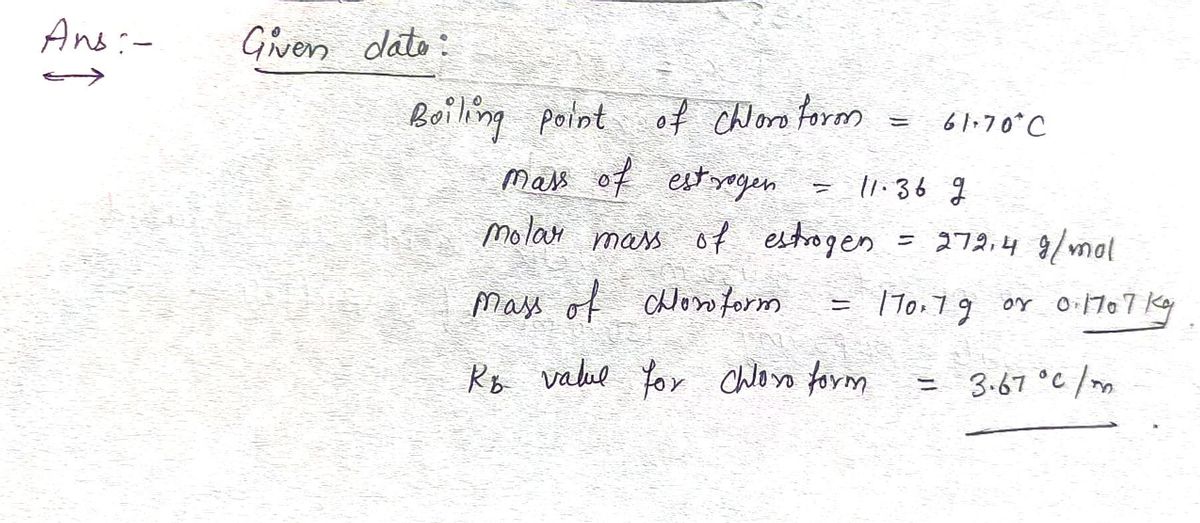 Ans :- Given data :
Boiling point of chloroform = 61.70°C
Mass of estrogen = 11.36 g
Molar mass of estrogen = 272.4 g/mol
Mass of chloroform = 170.7 g or 0.1707 Kg
Kb value for chloroform = 3.67 °C/m